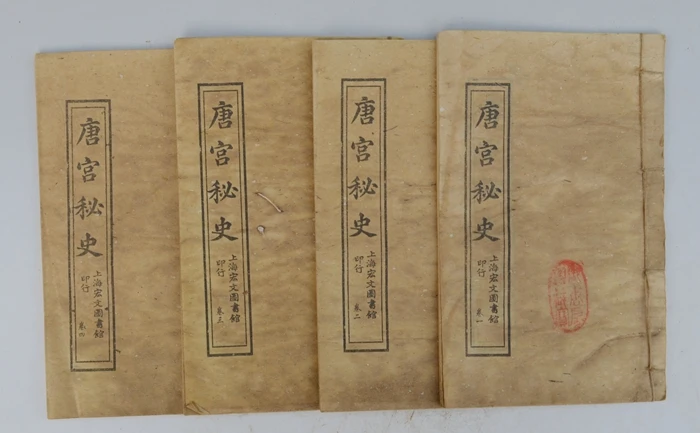 唐宫秘史
上海宏文圖書館
印行
卷一
唐宫秘史
上海宏文圖書館
印行
卷二
唐宫秘史
上海宏文圖書館
印行
卷三
唐宫秘史
上海宏文圖書館
印行
卷四